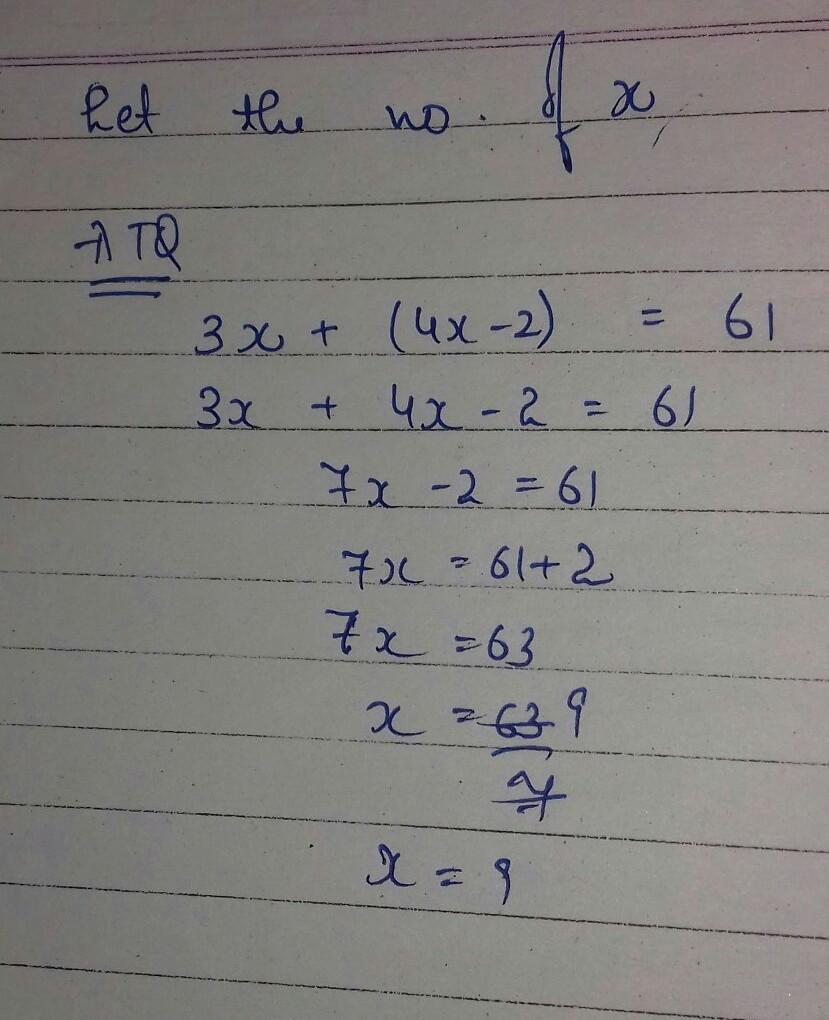 Let the no. of x,
ATQ
3x + (4x-2) = 61
3x + 4x - 2 = 61
7x - 2 = 61
7x = 61+2
7x = 63
x = 63 9
7
x = 9